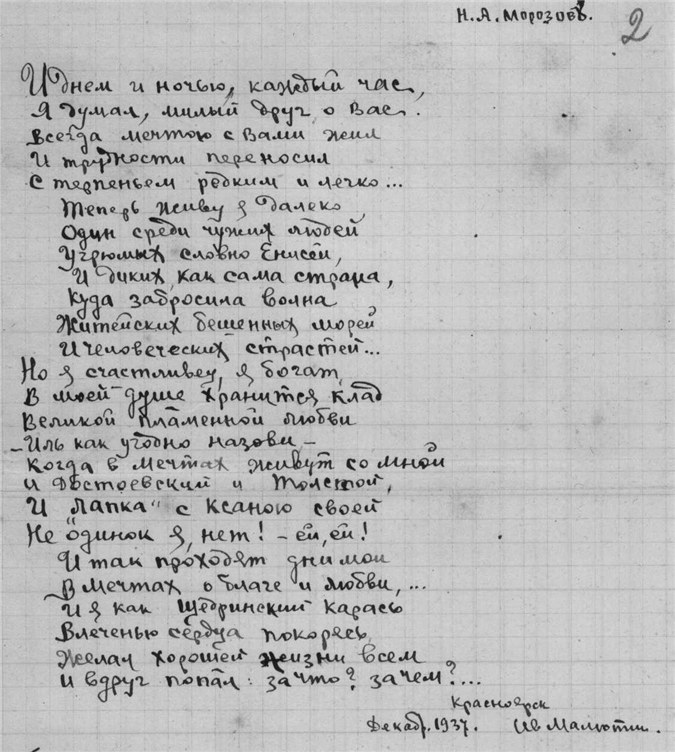 Н.А. Морозовъ.
2
И днем и ночью, каждый час,
Я думал, милый друг, о Вас.
Всегда мечтою с Вами жил
И трудности переносил
С терпеньем редким и легко...
Теперь живу я далеко
Один среди чужих людей
Угрюмых словно Енисей,
И диких, как сама страна,
Куда забросила волна
Житейских бешенных морей
И человеческих страстей...
Но я счастливец, я богат,
В моей душе хранится клад
Великой пламенной любви
– Иль как угодно назови –
Когда в мечтах живут со мной
И Достоевский и Толстой,
И "Лапка" с Ксаною своей
Не одинок я, нет! – ей, ей!
И так проходят дни мои
В мечтах о благе и любви,...
И я как Щедринский карась
Влеченью сердца покорясь,
Желал хорошей жизни всем
И вдруг попал: за что? зачем?....
Красноярск
Декабр. 1937. Ив Малютин.